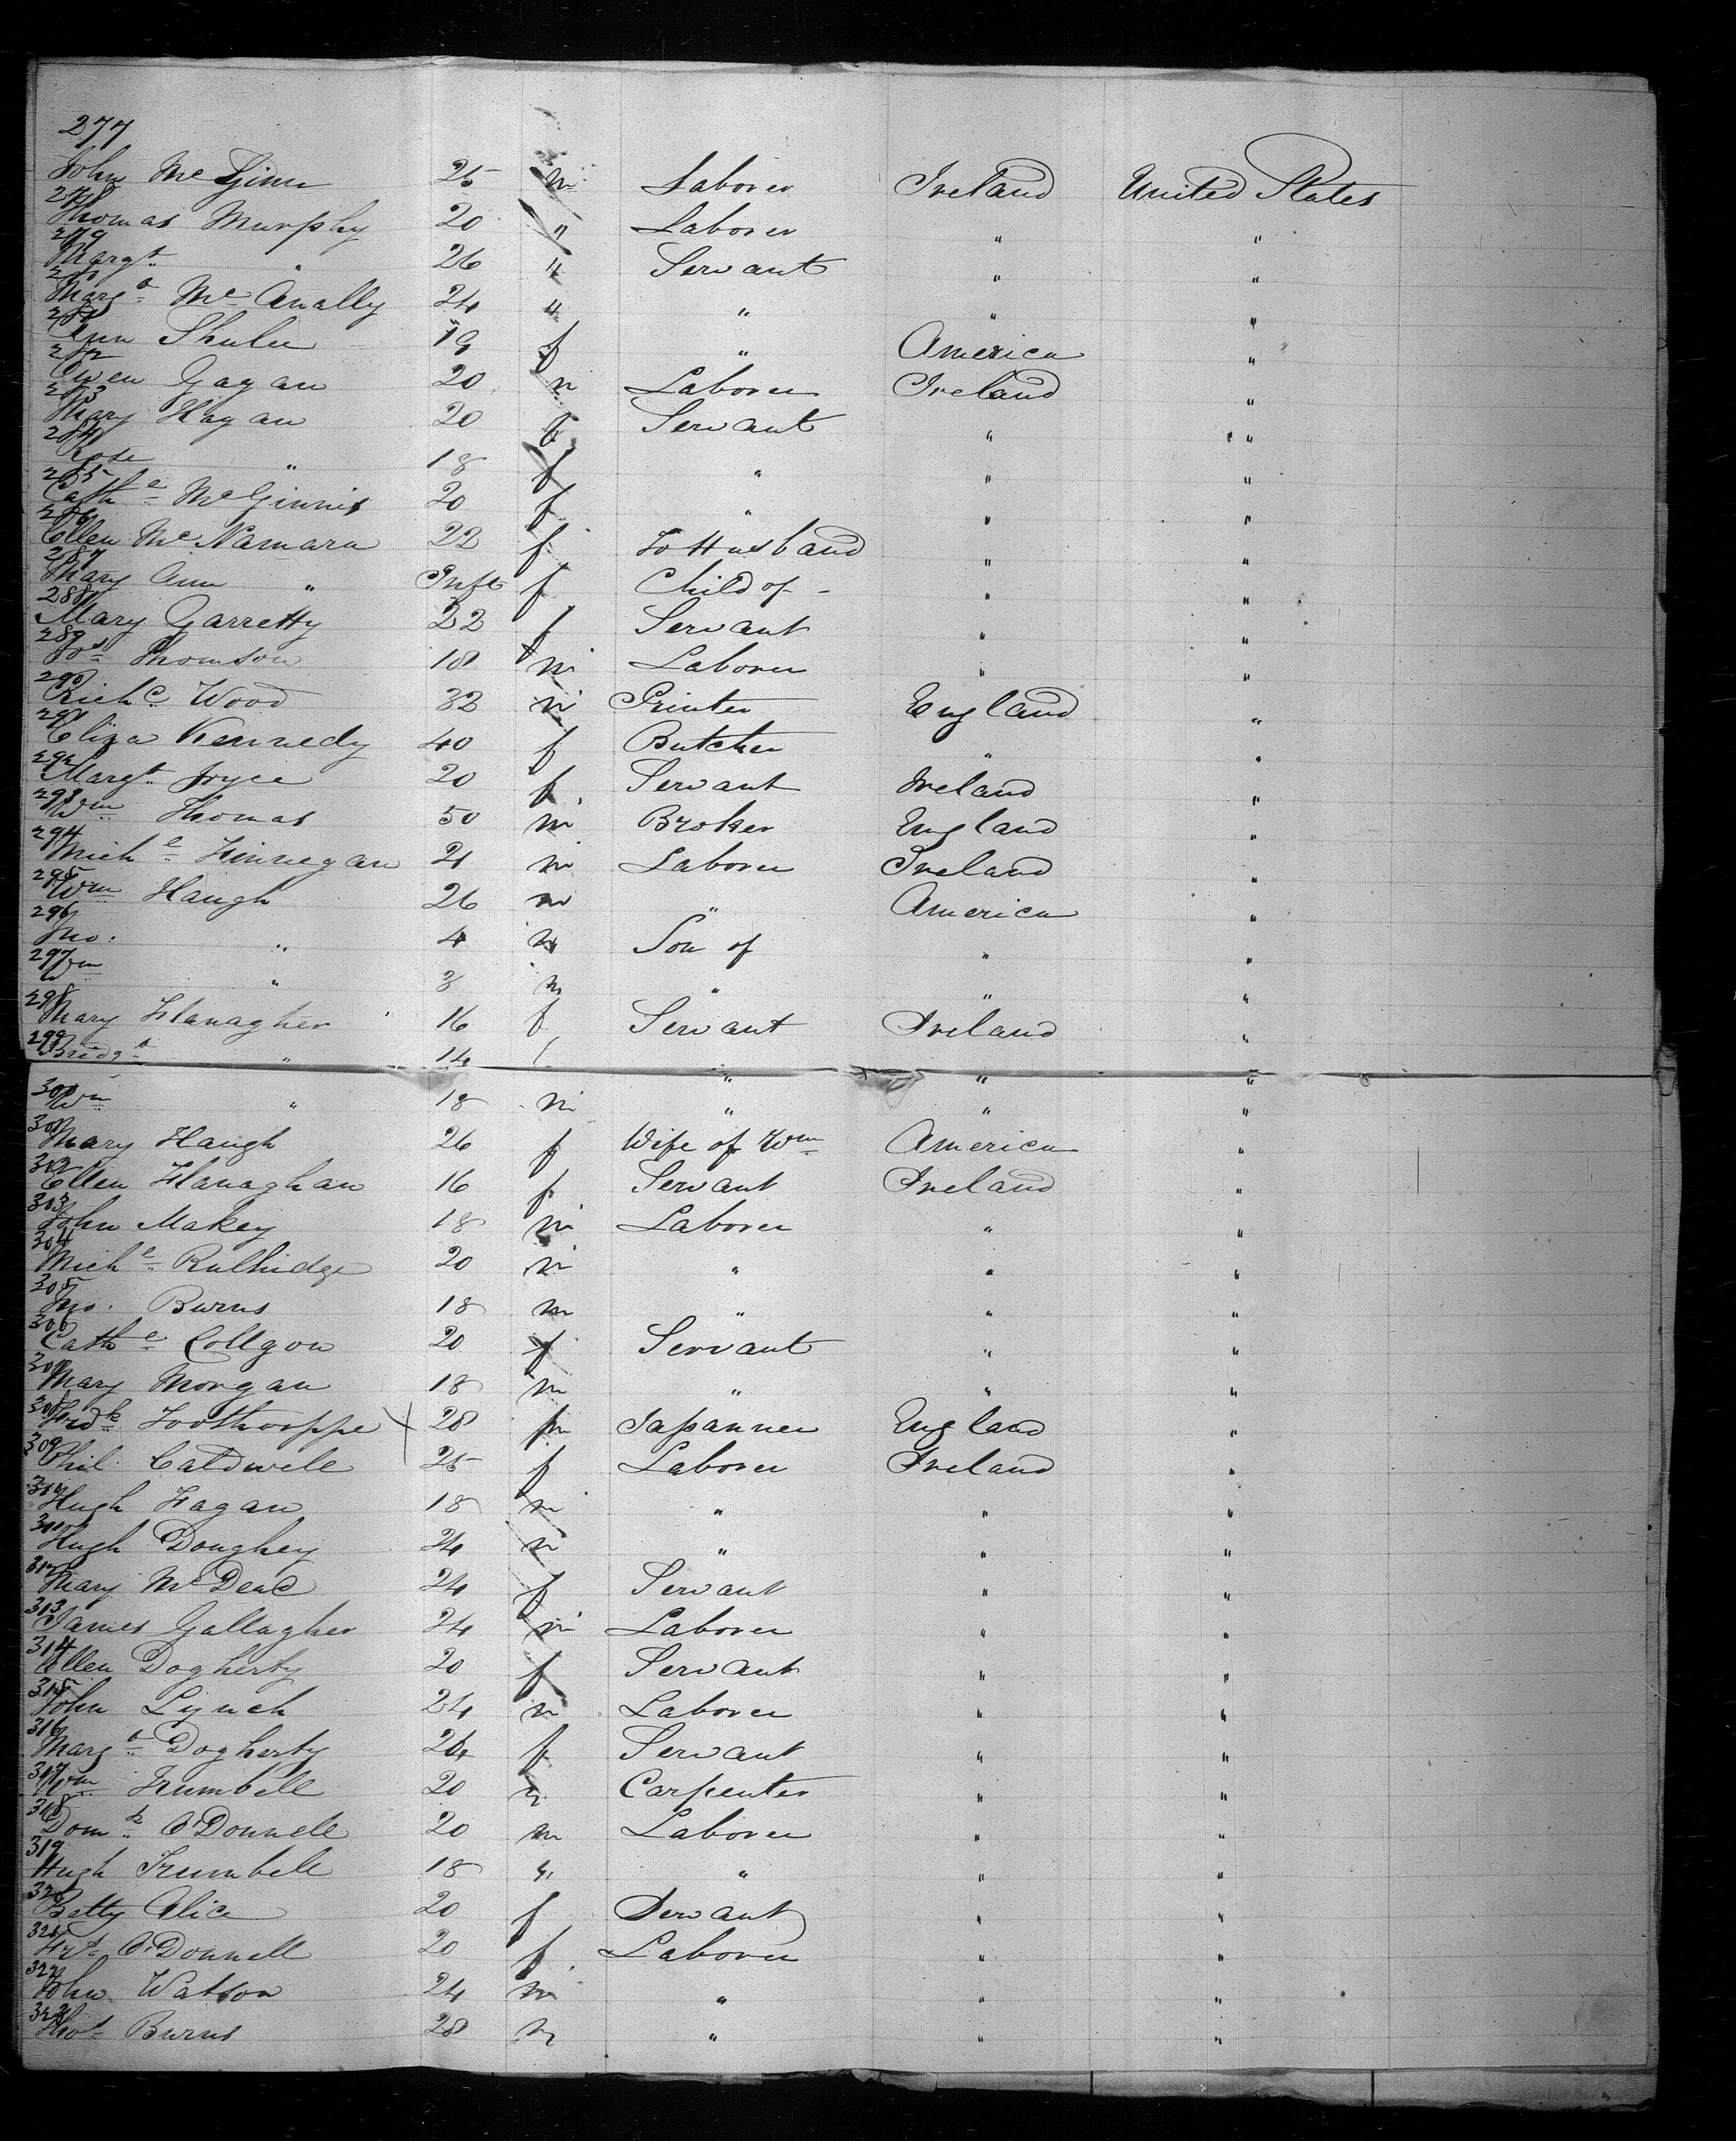 277
John McGinn 25 m Laborer Ireland United States
278
Thomas Murphy 20 " Laborer " "
279
Margt. " 26 " Servant " "
280
Margt. McAnally 24 " " " "
281
Ann 19 f " America "
282
Owen Gagan 20 m Laborer Ireland "
283
Mary Hagan 20 f Servant " "
284
Rose " 18 f " " "
285
Cathe. McGinnis 20 f " " "
286
Ellen McNamara 22 f To Husband " "
287
Mary Ann " Inft f Child of - " "
288
Mary Garretty 22 f Servant " "
289
Thomson 18 m Laborer " "
290
Richd. Wood 32 m Printer England "
291
Eliza Kennedy 40 f Butcher " "
292
Margt. Joyce 20 f Servant Ireland "
293
Wm Thomas 50 m Broker England "
294
Miche. Finnegan 21 m Laborer Ireland "
295
Wm Haugh 26 m " America "
296
Jno. " 4 m Son of " "
297
Wm " 3 m " " "
298
Mary Flanagher 16 f Servant Ireland "
299
Bridgt. " 14 f " " "
300
Wm " 18 m " " "
301
Mary Haugh 26 f Wife of Wm America "
302
Ellen Flanaghan 16 f Servant Ireland "
303
John Makey 18 m Laborer " "
304
Miche. Rulhidge 20 m " " "
305
Jno. Burns 18 m " " "
306
Cathe. Collgon 20 f Servant " "
307
Mary Morgan 18 m " " "
308
Fredk. Foothorppe 28 m Japanner England "
309
Phil. Caldwell 25 f Laborer Ireland "
310
Hugh Fagan 18 m " " "
311
Hugh Doughey 24 m " " "
312
Mary McDead 24 f Servant " "
313
James Gallagher 24 m Laborer " "
314
Ellen Dogherty 20 f Servant " "
315
John Lynch 24 m Laborer " "
316
Margt. Dogherty 24 f Servant " "
317
Wm Trumbell 20 m Carpenter " "
318
Domk. O'Donnell 20 m Laborer " "
319
Hugh Trumbell 18 m " " "
320
Betty Alice 20 f Servant " "
321
O'Donnell 20 f Laborer " "
322
John Watson 24 m " " "
323
Thos. Burns 28 m " " "